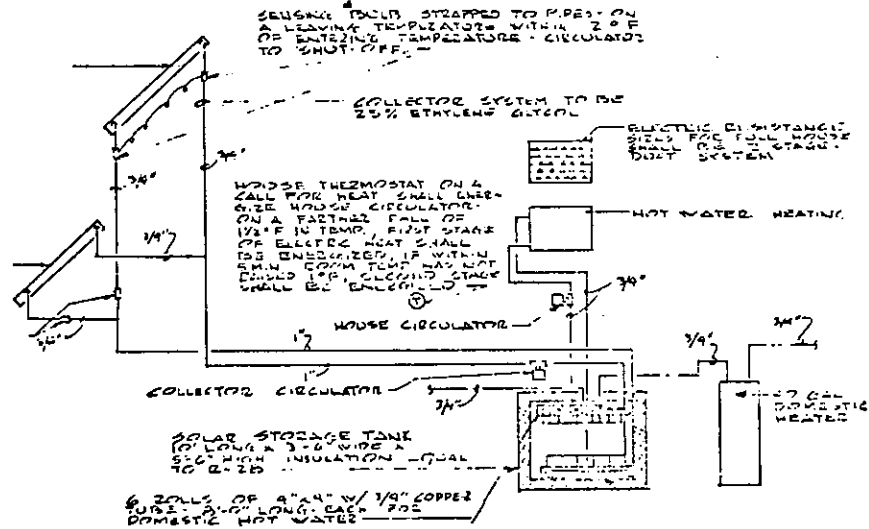 SENSING BULB STRAPPED TO PIPES - ON
A LEAVING TEMPERATURE WITHIN 2°F
OF ENTERING TEMPERATURE - CIRCULATOR
TO SHUT-OFF.
COLLECTOR SYSTEM TO BE
25% ETHYLENE GLYCOL
ELECTRIC RESISTANCE
SIZED FOR FULL HOUSE
SHALL BE 2 STAGE -
DUCT SYSTEM
3/4"
HOUSE THERMOSTAT ON A
CALL FOR HEAT SHALL ENER-
GIZE HOUSE CIRCULATOR.
ON A FARTHER FALL OF
1½°F IN TEMP., FIRST STAGE
OF ELECTRIC HEAT SHALL
BE ENERGIZED, IF WITHIN
5 MIN. ROOM TEMP HAS NOT
1°F, SECOND STAGE
SHALL BE ENERGIZED
HOT WATER HEATING
3/4"
3/4"
T
HOUSE CIRCULATOR
3/4"
3/4"
1"
1"
COLLECTOR CIRCULATOR
3/4"
GAL
DOMESTIC
HEATER
SOLAR STORAGE TANK
10' LONG X 3'-6" WIDE X
HIGH INSULATION EQUAL
TO
6 ROLLS OF W/ 3/4" COPPER
TUBE LONG EACH FOR
DOMESTIC HOT WATER